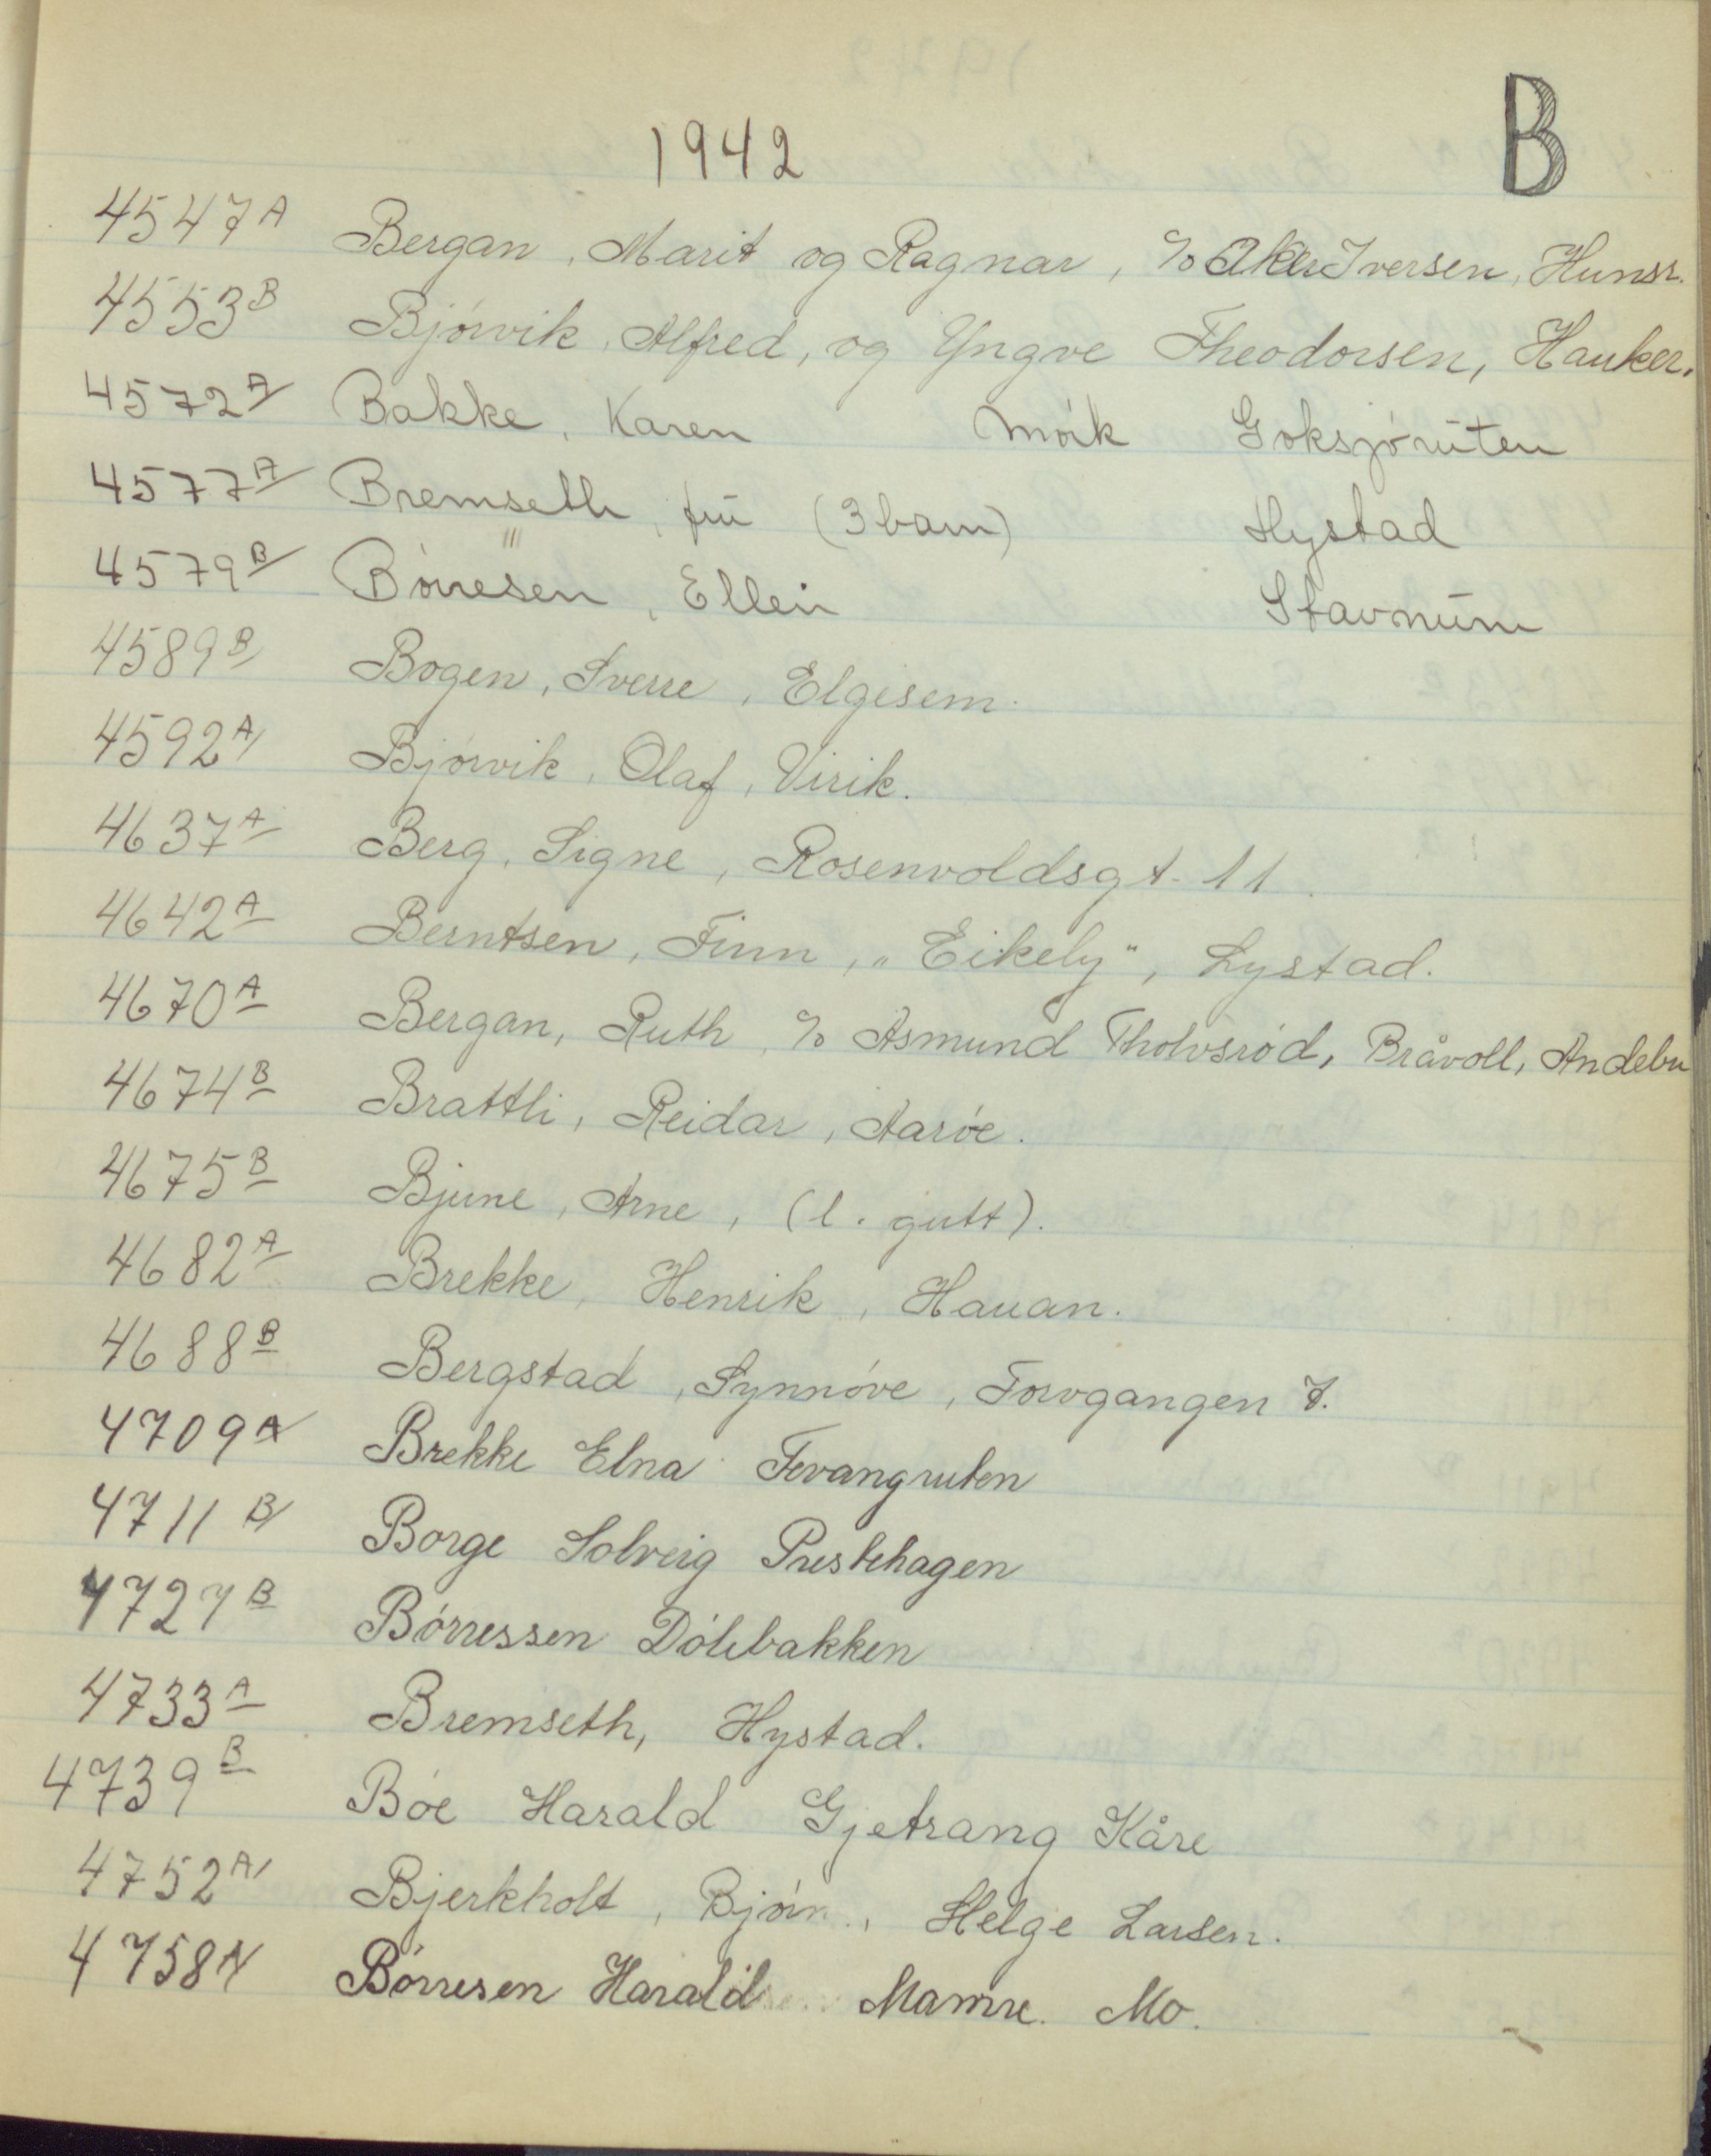 B
1942
4547 A Bergan, Marit og Ragnar, % Aker Iversen, Hunsr.
4553 B Bjórvik, Alfred, og Yngve Theodorsen, Hauker.
4572 A Bakke, Karen mórk Goksjóruten
4577 A Bremseth, fru (3 barn) Hystad
4579 B Bórresen, Ellen Stavnum
4589 B Bogen, Sverre, Elgesem.
4592 A Bjórvik, Olaf, Virik.
4637 A Berg, Signe, Rosenvoldsgt. 11.
4642 A Berntsen, Finn, „Eikely", Lystad.
4670 A Bergan, Ruth, % Asmund Tholvsród, Bråvoll, Andebu
4674 B Brattli, Reidar, Aaróe.
4675 B Bjune, Arne, (l. gutt).
4682 A Brekke, Henrik, Hauan.
4688 B Bergstad, Synnóve, Torvgangen 7.
4709 A Brekke Elna Fevangruten
4711 B Borge Solveig Prestehagen
4727 B Bórressen Dólebakken
4733 A Bremseth, Hystad.
4739 B Bóe Harald Gjetrang Kåre
4752 A Bjerkholt, Bjórn., Helge Larsen.
4758 A Bórresen Harald Mamre. Mo.